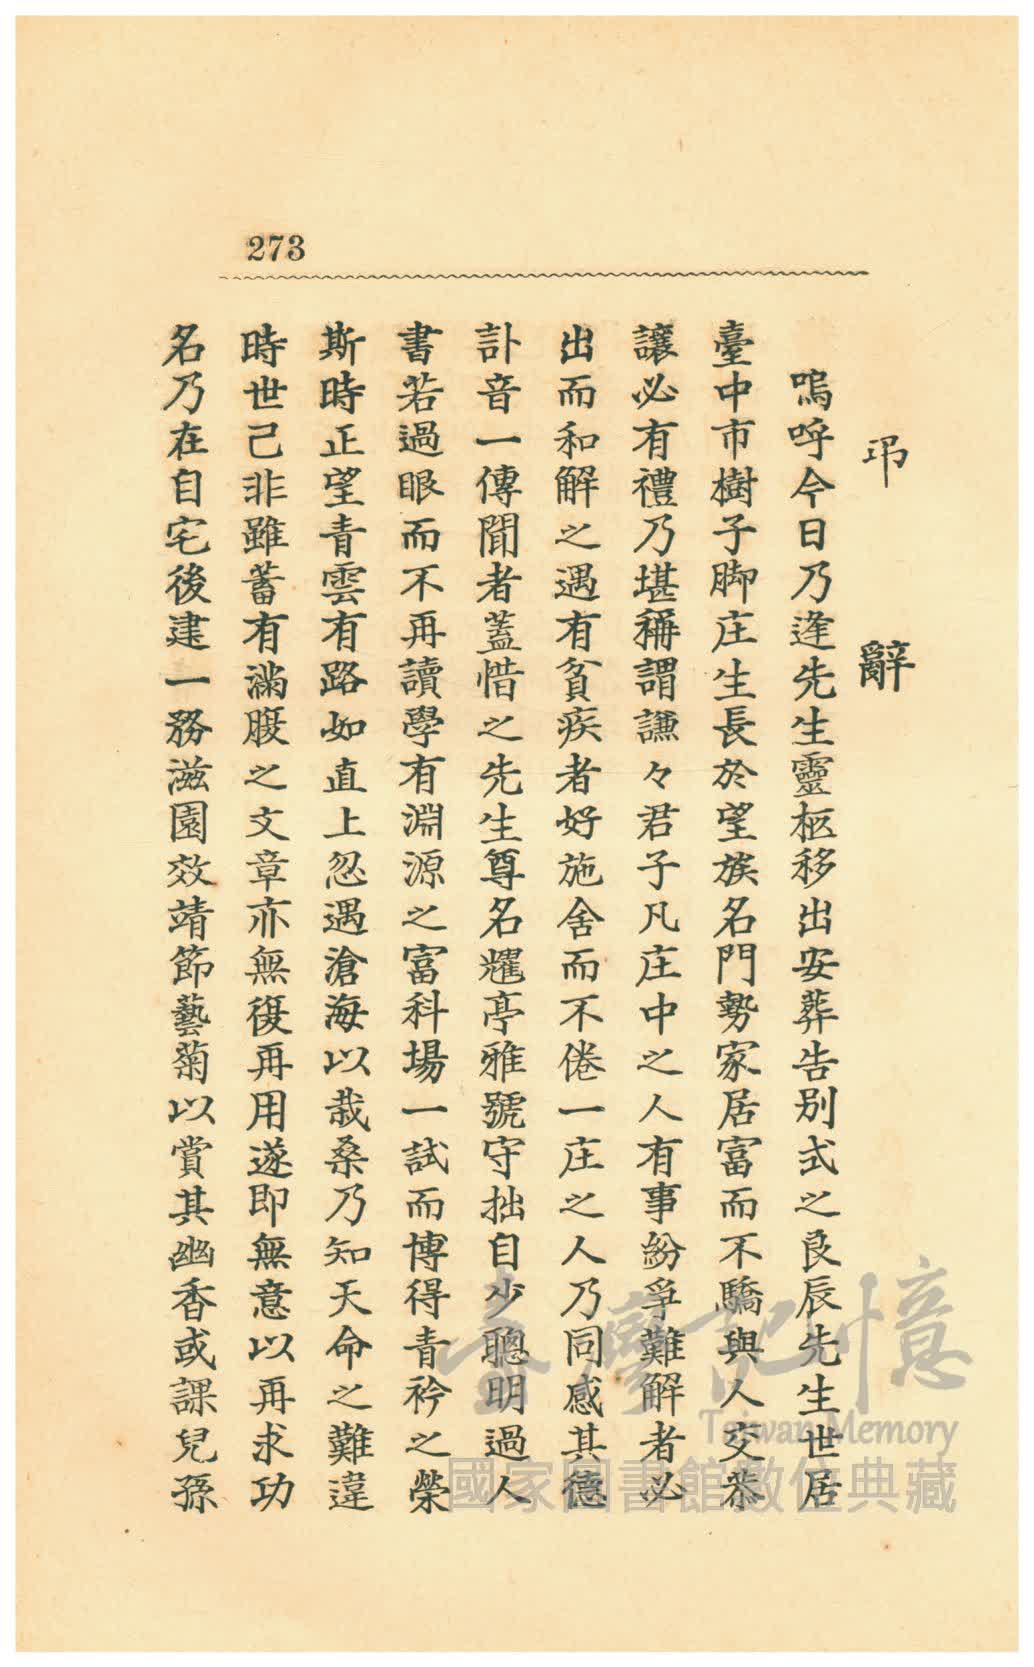 273
弔辭
嗚呼今日乃逢先生靈柩移出安葬告別式之良辰先生世居
臺中市樹子脚庄生長於望族名門勢家居富而不驕與人交恭
讓必有禮乃堪稱謂謙々君子凡庄中之人有事紛爭難解者必
出而和解之遇有貧疾者好施舍而不倦一庄之人乃同感其德
訃音一傳聞者蓋惜之先生尊名耀亭雅號守拙自少聰明過人
書若過眼而不再讀學有淵源之富科場一試而博得青衿之榮
斯時正望青雲有路如直上忽遇滄海以栽桑乃知天命之難違
時世己非雖蓄有滿腹之文章亦無復再用遂即無意以再求功
名乃在自宅後建一務滋園效靖節藝菊以賞其幽香或課兒孫
臺灣記憶
Taiwan Memory
國家圖書館數位典藏